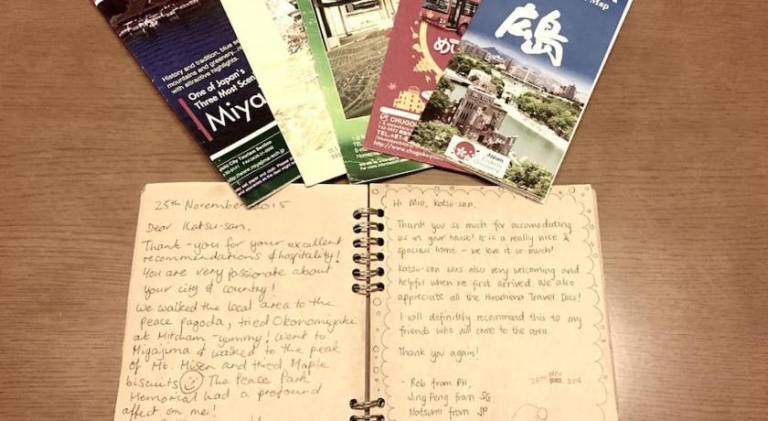 History and tradition, blue sea
mountains and greenery...
with attractive highlights.
One of Japan's
Three Most Scen
Miya
めい
CHUGO
広島
Map
Japan
25th November 2015
Dear Katsu-san,
Thank-you for your excellent
recommendations & hospitality!
You are very passionate about
your city & country!
We walked the local area to the
peace pagoda, tried Okonomiyaki
at Mitcham - yummy! Went to
Miyajima & walked to the peak
of Mt. Misen and tried Maple
biscuits The Peace Park
Memorial had a profound
affect on me!
Hi Mio, Katsu-san,
Thank you so much for accomodating
us in your house! It is a really nice &
spacious home - we love it so much!
Katsu-san was also very welcoming and
helpful when we first arrived. We also
appreciate all the Hiroshima Travel Docs!
I will definitely recommend this to my
friends who will come to the area.
Thank you again!
- Rob from PH,
Jing Feng from SG
Natsumi from JP